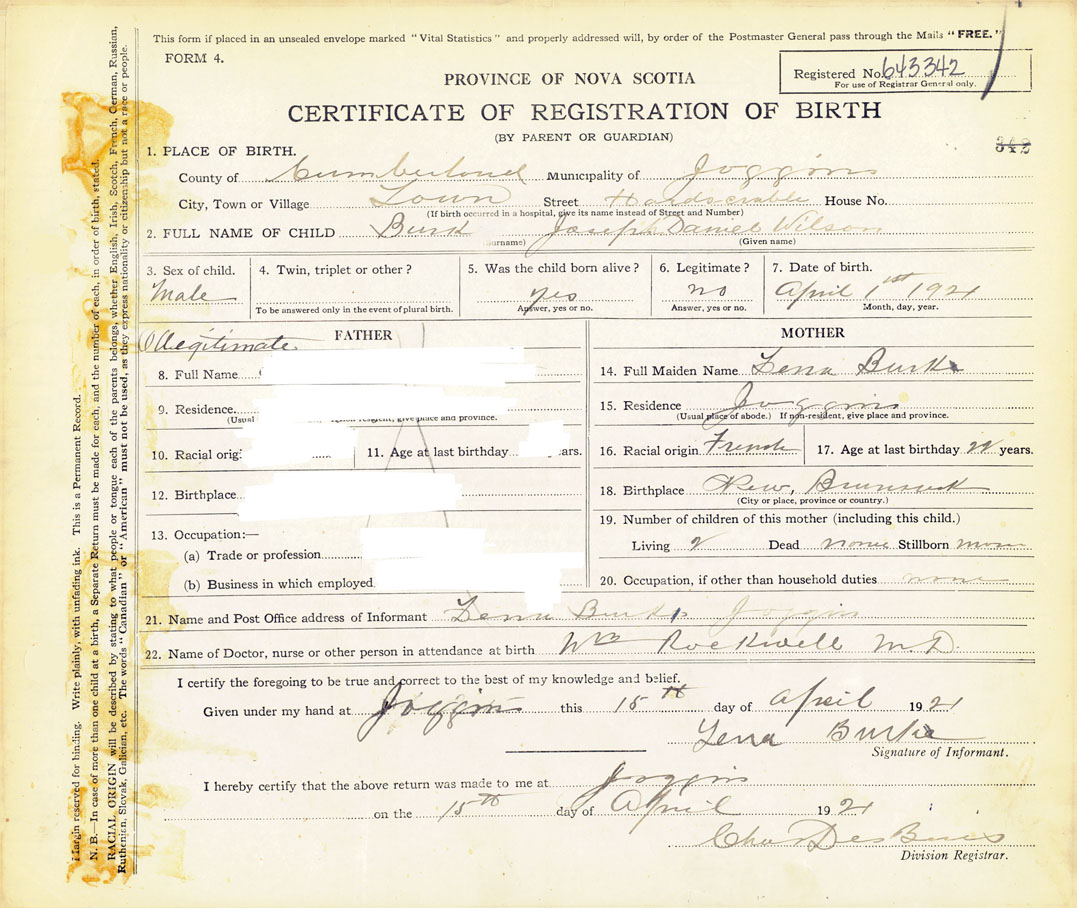 This form if placed in an unsealed envelope marked "Vital Statistics" and properly addressed will, by order of the Postmaster General pass through the Mails "FREE."
FORM 4.
Registered No. 643342
For use of Registrar General only.
PROVINCE OF NOVA SCOTIA
CERTIFICATE OF REGISTRATION OF BIRTH
(BY PARENT OR GUARDIAN)
342
1. PLACE OF BIRTH.
County of Cumberland Municipality of Joggins
City, Town or Village Town Street Hardscrable House No.
(If birth occurred in a hospital, give its name instead of Street and Number)
2. FULL NAME OF CHILD Burk Joseph Daniel Wilson
urname) (Given name)
3. Sex of child. 4. Twin, triplet or other? 5. Was the child born alive? 6. Legitimate? 7. Date of birth.
Male yes no April 1st 1921
To be answered only in the event of plural birth. Answer, yes or no. Answer, yes or no. Month, day, year.
FATHER
Illegitimate
8. Full Name
9. Residence
(Usual resident, give place and province.
10. Racial orig 11. Age at last birthday ars.
12. Birthplace
13. Occupation:—
(a) Trade or profession
(b) Business in which employed
MOTHER
14. Full Maiden Name Lena Burke
15. Residence Joggins
(Usual place of abode.) If non-resident, give place and province.
16. Racial origin French 17. Age at last birthday years.
18. Birthplace New Brunswick
(City or place, province or country.)
19. Number of children of this mother (including this child.)
Living 2 Dead none Stillborn none
20. Occupation, if other than household duties none
21. Name and Post Office address of Informant Lena Burke Joggins
22. Name of Doctor, nurse or other person in attendance at birth Wm Rockwell M.D.
I certify the foregoing to be true and correct to the best of my knowledge and belief.
Given under my hand at Joggins this 15th day of April 1921
Lena Burke
Signature of Informant.
I hereby certify that the above return was made to me at Joggins
on the 15th day of April 1921
Chas DesBarres
Division Registrar.
Margin reserved for binding. Write plainly, with unfading ink. This is a Permanent Record.
N. B.—In case of more than one child at a birth, a Separate Return must be made for each, and the number of each, in order of birth, stated.
RACIAL ORIGIN will be described by stating to what people or tongue each of the parents belongs, whether English, Irish, Scotch, French, German, Russian,
Ruthenian, Slovak, Galician, etc. The words "Canadian" or "American" must not be used, as they express nationality or citizenship but not a race or people.